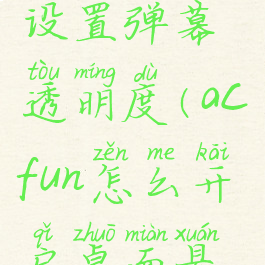 设置弹幕
tòu míng dù
透明度(ac
zěn me kāi
fun怎么开
qǐ zhuō miàn xuán
启桌面具